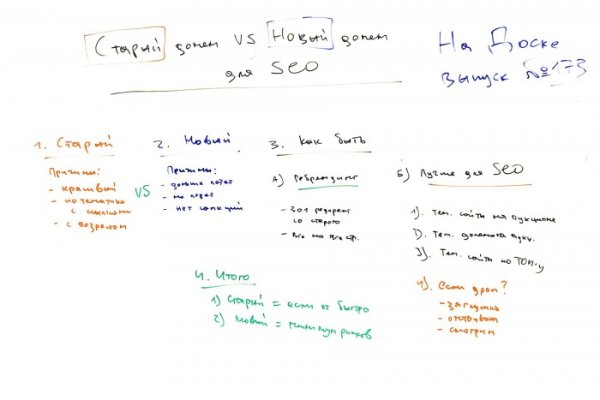 Старый домен VS Новый домен
для SEO
На Доске
выпуск №173
1. Старый
Причины:
- красивый
- по тематике
с ссылками
- с возрастом
VS
2. Новый
Причины:
- дольше
- нет санкций
3. Как быть
А) Ребрендинг
- 301 редирект
со старого
- Все на все стр.
Б) Лучше для SEO
1). Тем. сайты на аукционе
2). Тем. домены аукц.
3). Тем. сайты по ТОП-у
4). если дроп?
- загнуть
- отстоять
- смотрим
4. Итого
1) Старый = если оч быстро
2) Новый = минимум рисков